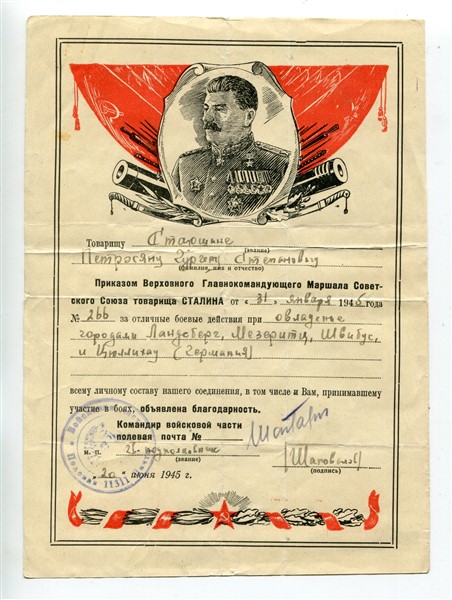 Товарищу Старшине
(звание)
Петросяну Степановичу
(фамилия, имя и отчество)
Приказом Верховного Главнокомандующего Маршала Совет-
ского Союза товарища СТАЛИНА от « 31 » января 1945 года
№ 266 за отличные боевые действия при овладенье
городами Ландсберг, Мезеритц, Швибус,
и Цюллихау (Германия)
всему личному составу нашего соединения, в том числе и Вам, принимавшему
участие в боях, объявлена благодарность.
Командир войсковой части
полевая почта №
м. п. подполковник
(звание)
(Шаповалов)
(подпись)
« 20 » июня 1945 г.